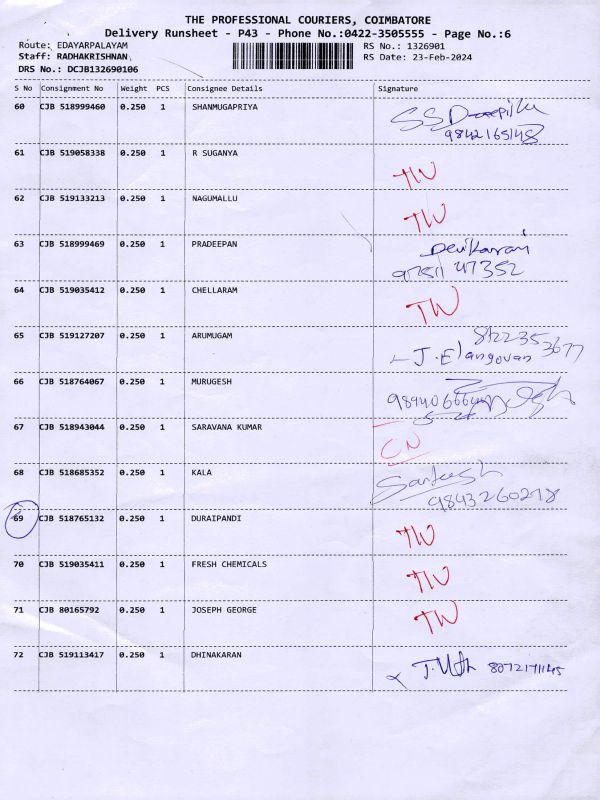 THE PROFESSIONAL COURIERS, COIMBATORE
Delivery Runsheet - P43 - Phone No.:0422-3505555 - Page No.:6
Route: EDAYARPALAYAM RS No.: 1326901
Staff: RADHAKRISHNAN RS Date: 23-Feb-2024
DRS No.: DCJB132690106
S No Consignment No Weight PCS Consignee Details Signature
60 CJB 518999460 0.250 1 SHANMUGAPRIYA
9842165148
61 CJB 519058338 0.250 1 R SUGANYA TW
62 CJB 519133213 0.250 1 NAGUMALLU TW
63 CJB 518999469 0.250 1 PRADEEPAN
97511 47352
64 CJB 519035412 0.250 1 CHELLARAM TW
65 CJB 519127207 0.250 1 ARUMUGAM J. Elangovan
66 CJB 518764067 0.250 1 MURUGESH
67 CJB 518943044 0.250 1 SARAVANA KUMAR CN
68 CJB 518685352 0.250 1 KALA Santhosh
9843260278
69 CJB 518765132 0.250 1 DURAIPANDI TW
70 CJB 519035411 0.250 1 FRESH CHEMICALS TW
71 CJB 80165792 0.250 1 JOSEPH GEORGE TW
72 CJB 519113417 0.250 1 DHINAKARAN